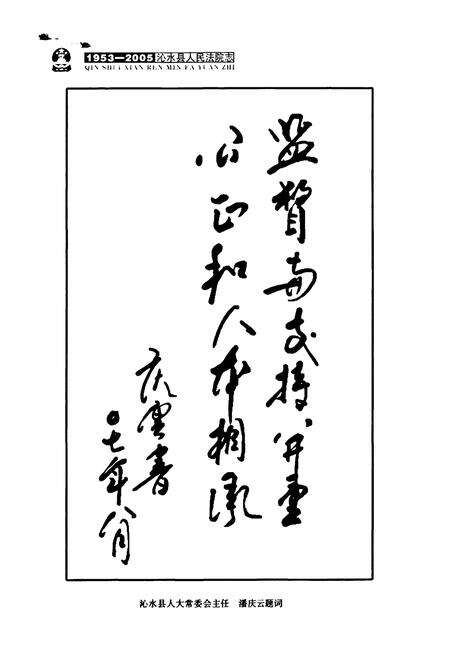 1953—2005沁水县人民法院志
QIN SHUI XIAN REN MIN FA YUAN ZHI
监督与支持并重
公正和人本相
庆雲書
〇七年八月
沁水县人大常委会主任 潘庆云题词